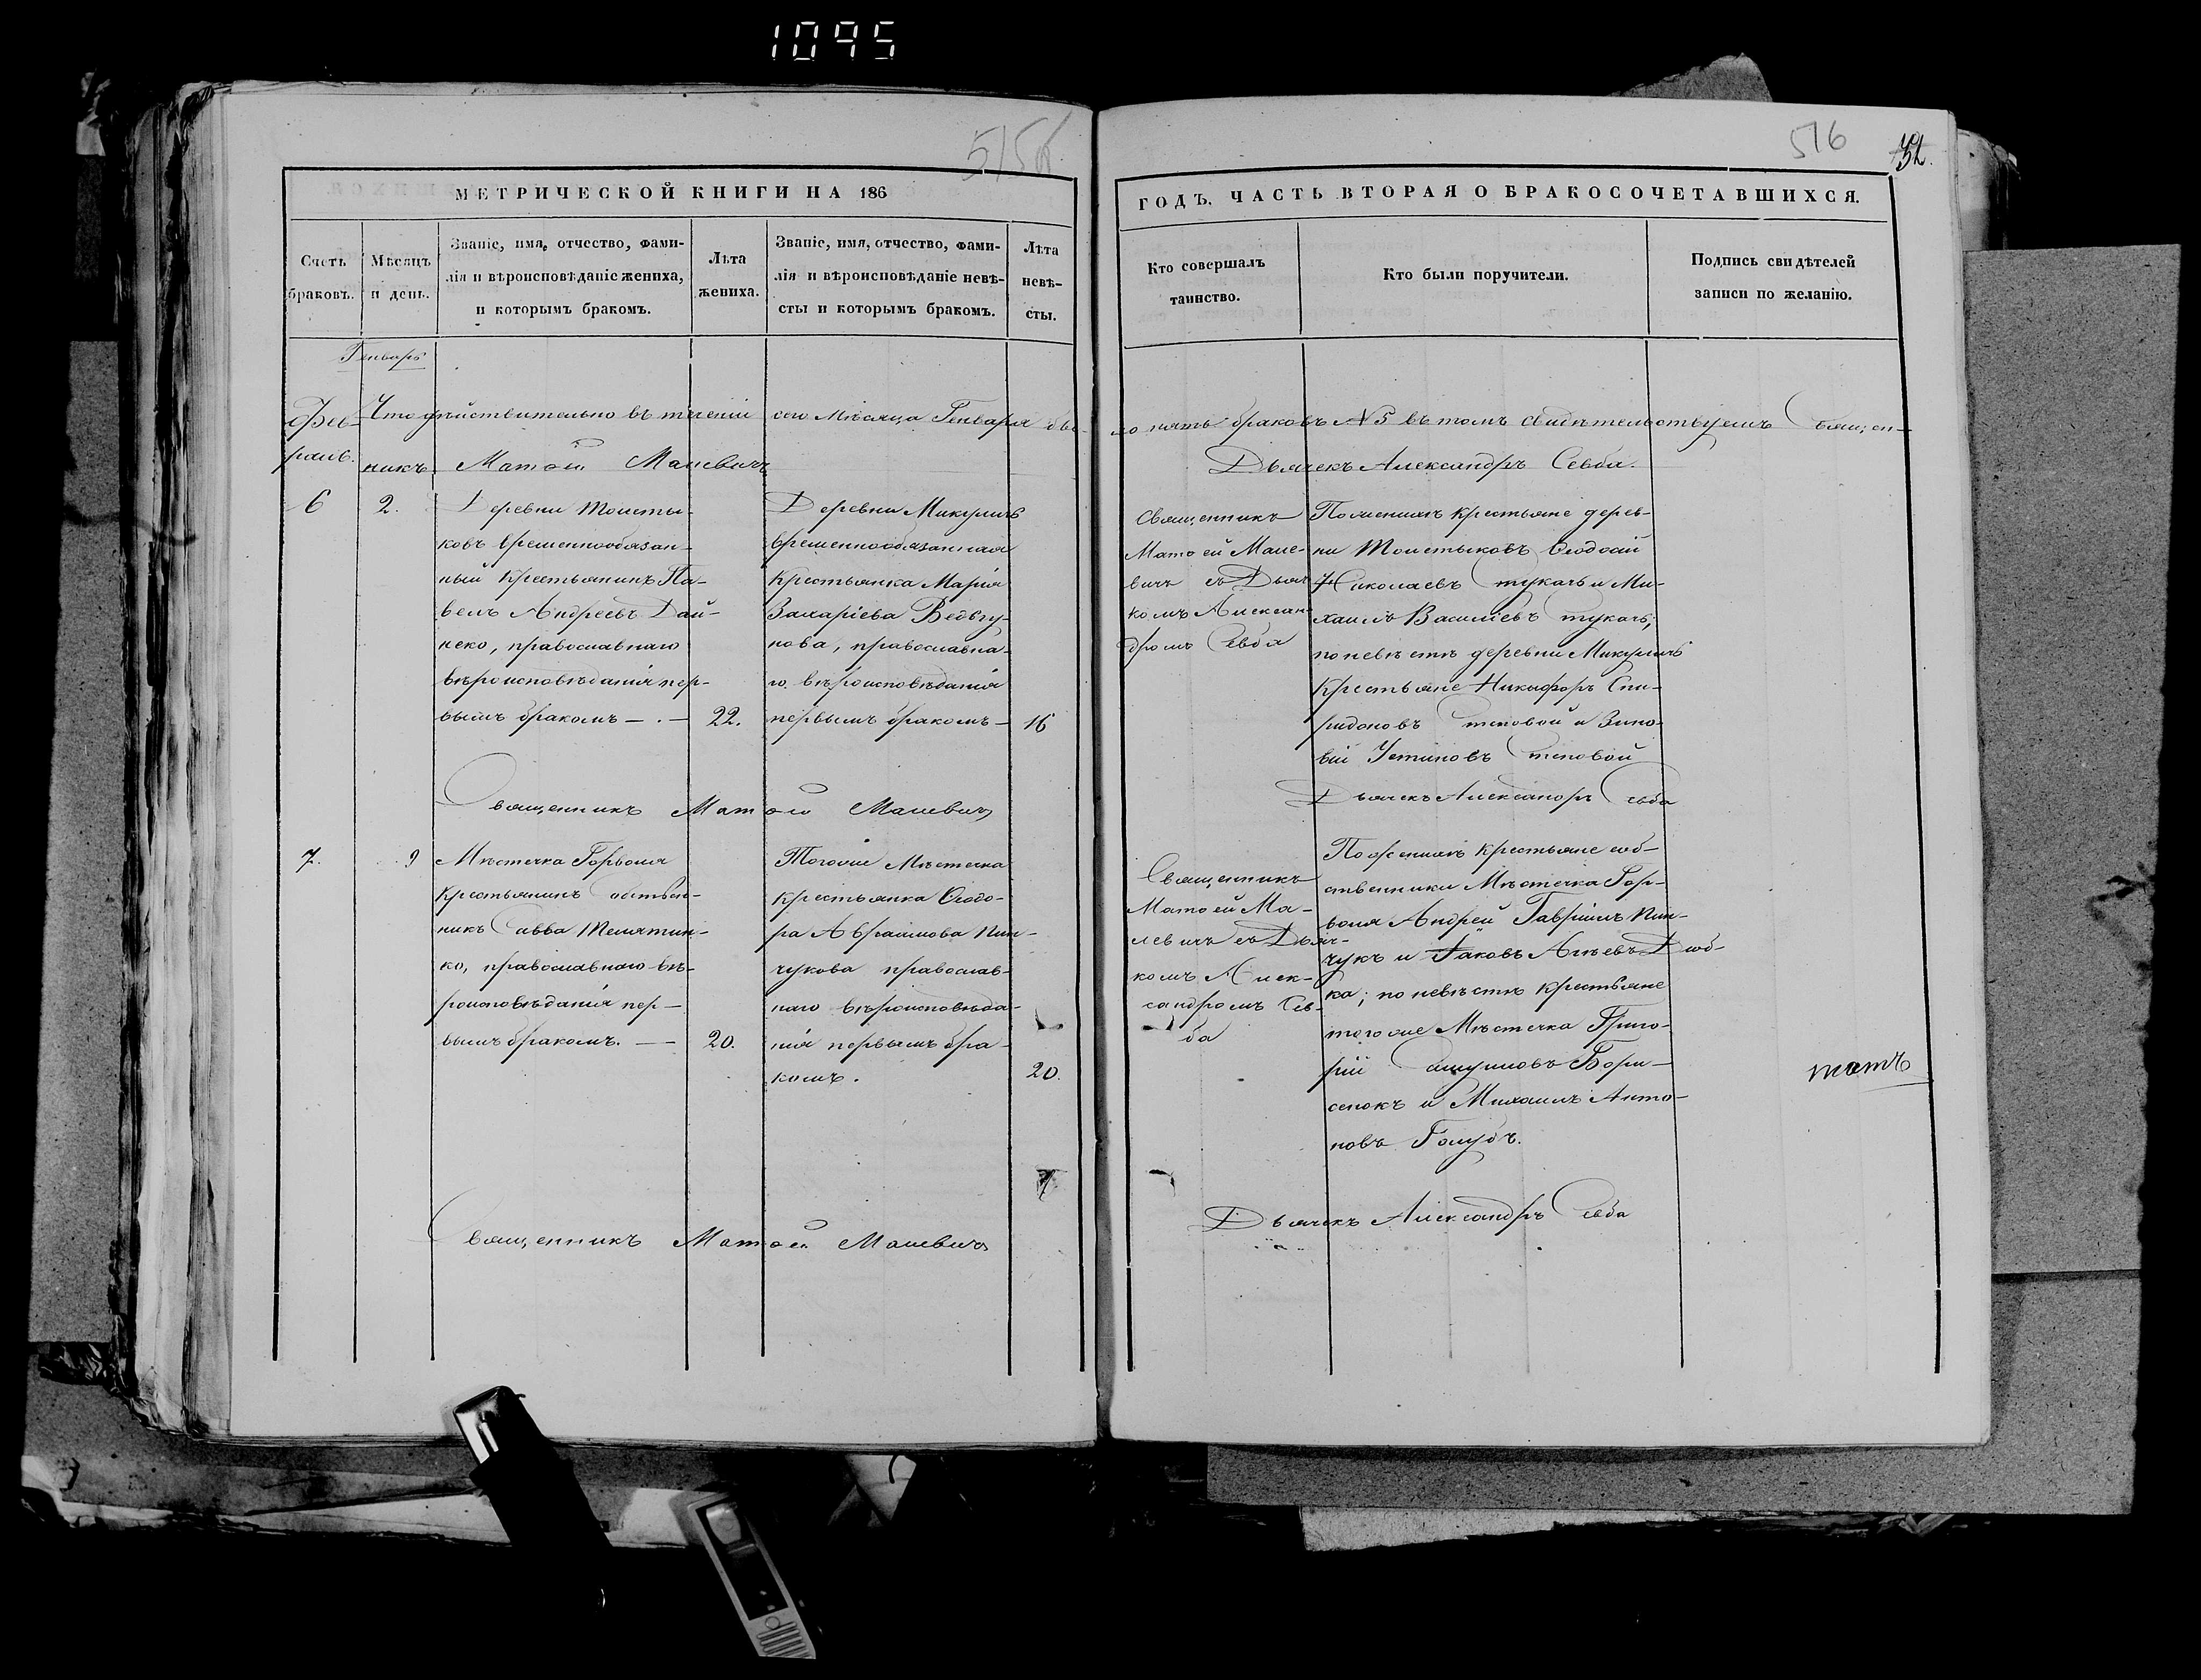 1095
515б
МЕТРИЧЕСКОЙ КНИГИ НА 186
Счетъ браковъ.
Мѣсяцъ и день.
Званіе, имя, отчество, фами-
лія и вѣроисповѣданіе жениха,
и которымъ бракомъ.
Лѣта
жениха.
Званіе, имя, отчество, фами-
лія и вѣроисповѣданіе невѣ-
сты и которымъ бракомъ.
Лѣта
невѣ-
сты.
Генварь
Фев-
раль.
Что дѣйствительно въ теченіи сего Мѣсяца Генваря бы-
никъ Матѳей Малевичъ
6
2.
Деревни Толсты-
ковъ временнообязан-
ный Крестьянинъ Па-
велъ Андреевъ Дай-
неко, православнаго
вѣроисповѣданія пер-
вымъ бракомъ — . —
22.
Деревни Микуличъ
временнообязанная
Крестьянка Марія
Захаріева
нова, православна-
го вѣроисповѣданія
первымъ бракомъ —
16
Священникъ Матѳей Малевичъ
7.
9
Мѣстечка Горволя
Крестьянинъ собствен-
никъ Савва Телятин-
ко, православнаго вѣ-
роисповѣданія пер-
вымъ бракомъ. —
20.
Тогоже Мѣстечка
Крестьянка Ѳеодо-
ра Авраамова Пин-
чукова православ-
наго вѣроисповѣда-
нія первымъ бра-
комъ.
20.
Священникъ Матѳей Малевичъ
516
32.
ГОДЪ, ЧАСТЬ ВТОРАЯ О БРАКОСОЧЕТАВШИХСЯ.
Кто совершалъ
таинство.
Кто были поручители.
Подпись свидѣтелей
записи по желанію.
ло пять браковъ № 5 въ томъ свидѣтельствуемъ Священ-
Дьячекъ Александръ Севба.
Священникъ
Матѳей Мале-
вичъ съ Дьяч
комъ Алексан-
дромъ Севба
По женихѣ крестьяне дерев-
ни Толстыковъ Ѳеодосій
Николаевъ Стукачъ и Ми-
хаилъ Василіевъ Стукачъ;
по невѣстѣ деревни Микуличъ
крестьяне Никифоръ Спи-
ридоновъ Степовой и Зино-
вій Устиновъ Степовой
Дьячекъ Александръ Севба
Священникъ
Матѳей Ма-
левичъ съ Дьяч-
комъ Алек-
сандромъ Сев-
ба
По женихѣ крестьяне соб-
ственники Мѣстечка Гор-
воля Андрей Гавріилъ Пин-
чукъ и Іаковъ
ка; по невѣстѣ крестьяне
тогоже Мѣстечка Григо-
рій Бори-
сенокъ и Михаилъ Анто-
новъ Голубъ.
Дьячекъ Александръ Севба